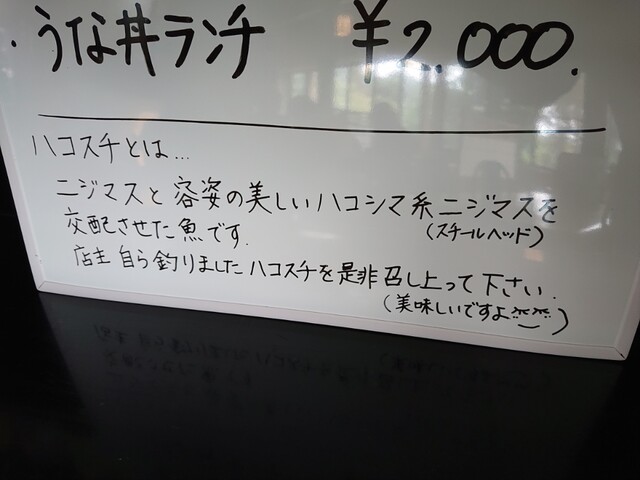 ・うな丼ランチ ¥2,000.
ハコスチとは…
ニジマスと容姿の美しいハコシマ系ニジマスを
(スチールヘッド)
交配させた魚です.
店主自ら釣りましたハコスチを是非召し上って下さい.
(美味しいですよ)